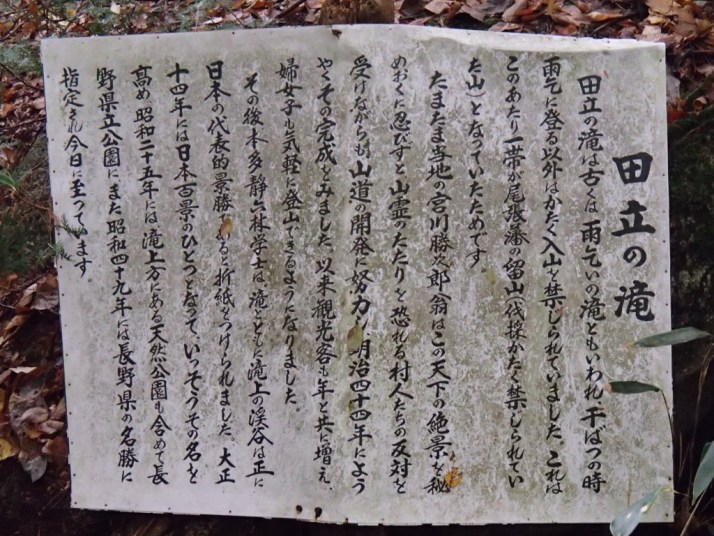 田立の滝
田立の滝は古くは雨乞いの滝ともいわれ、干ばつの時
雨乞に登る以外はかたく入山を禁じられていました。これは
このあたり一帯が尾張藩の留山(伐採かたく禁じられてい
た山)となっていたためです。
たまたま当地の宮川勝次郎翁はこの天下の絶景を秘
めおくに忍びずと山霊のたたりを恐れる村人たちの反対を
受けながらも山道の開発に努力し明治四十四年によう
やくその完成をみました。以来観光客も年と共に増え、
婦女子も気軽に登山できるようになりました。
その後本多静六林学士は、滝とともに滝上の渓谷は正に
日本の代表的景勝であると折紙をつけられました。大正
十四年には日本百景のひとつとなって、いっそうその名を
高め、昭和二十五年には滝上方にある天然公園も含めて長
野県立公園にまた昭和四十九年には長野県の名勝に
指定され今日に至っています。